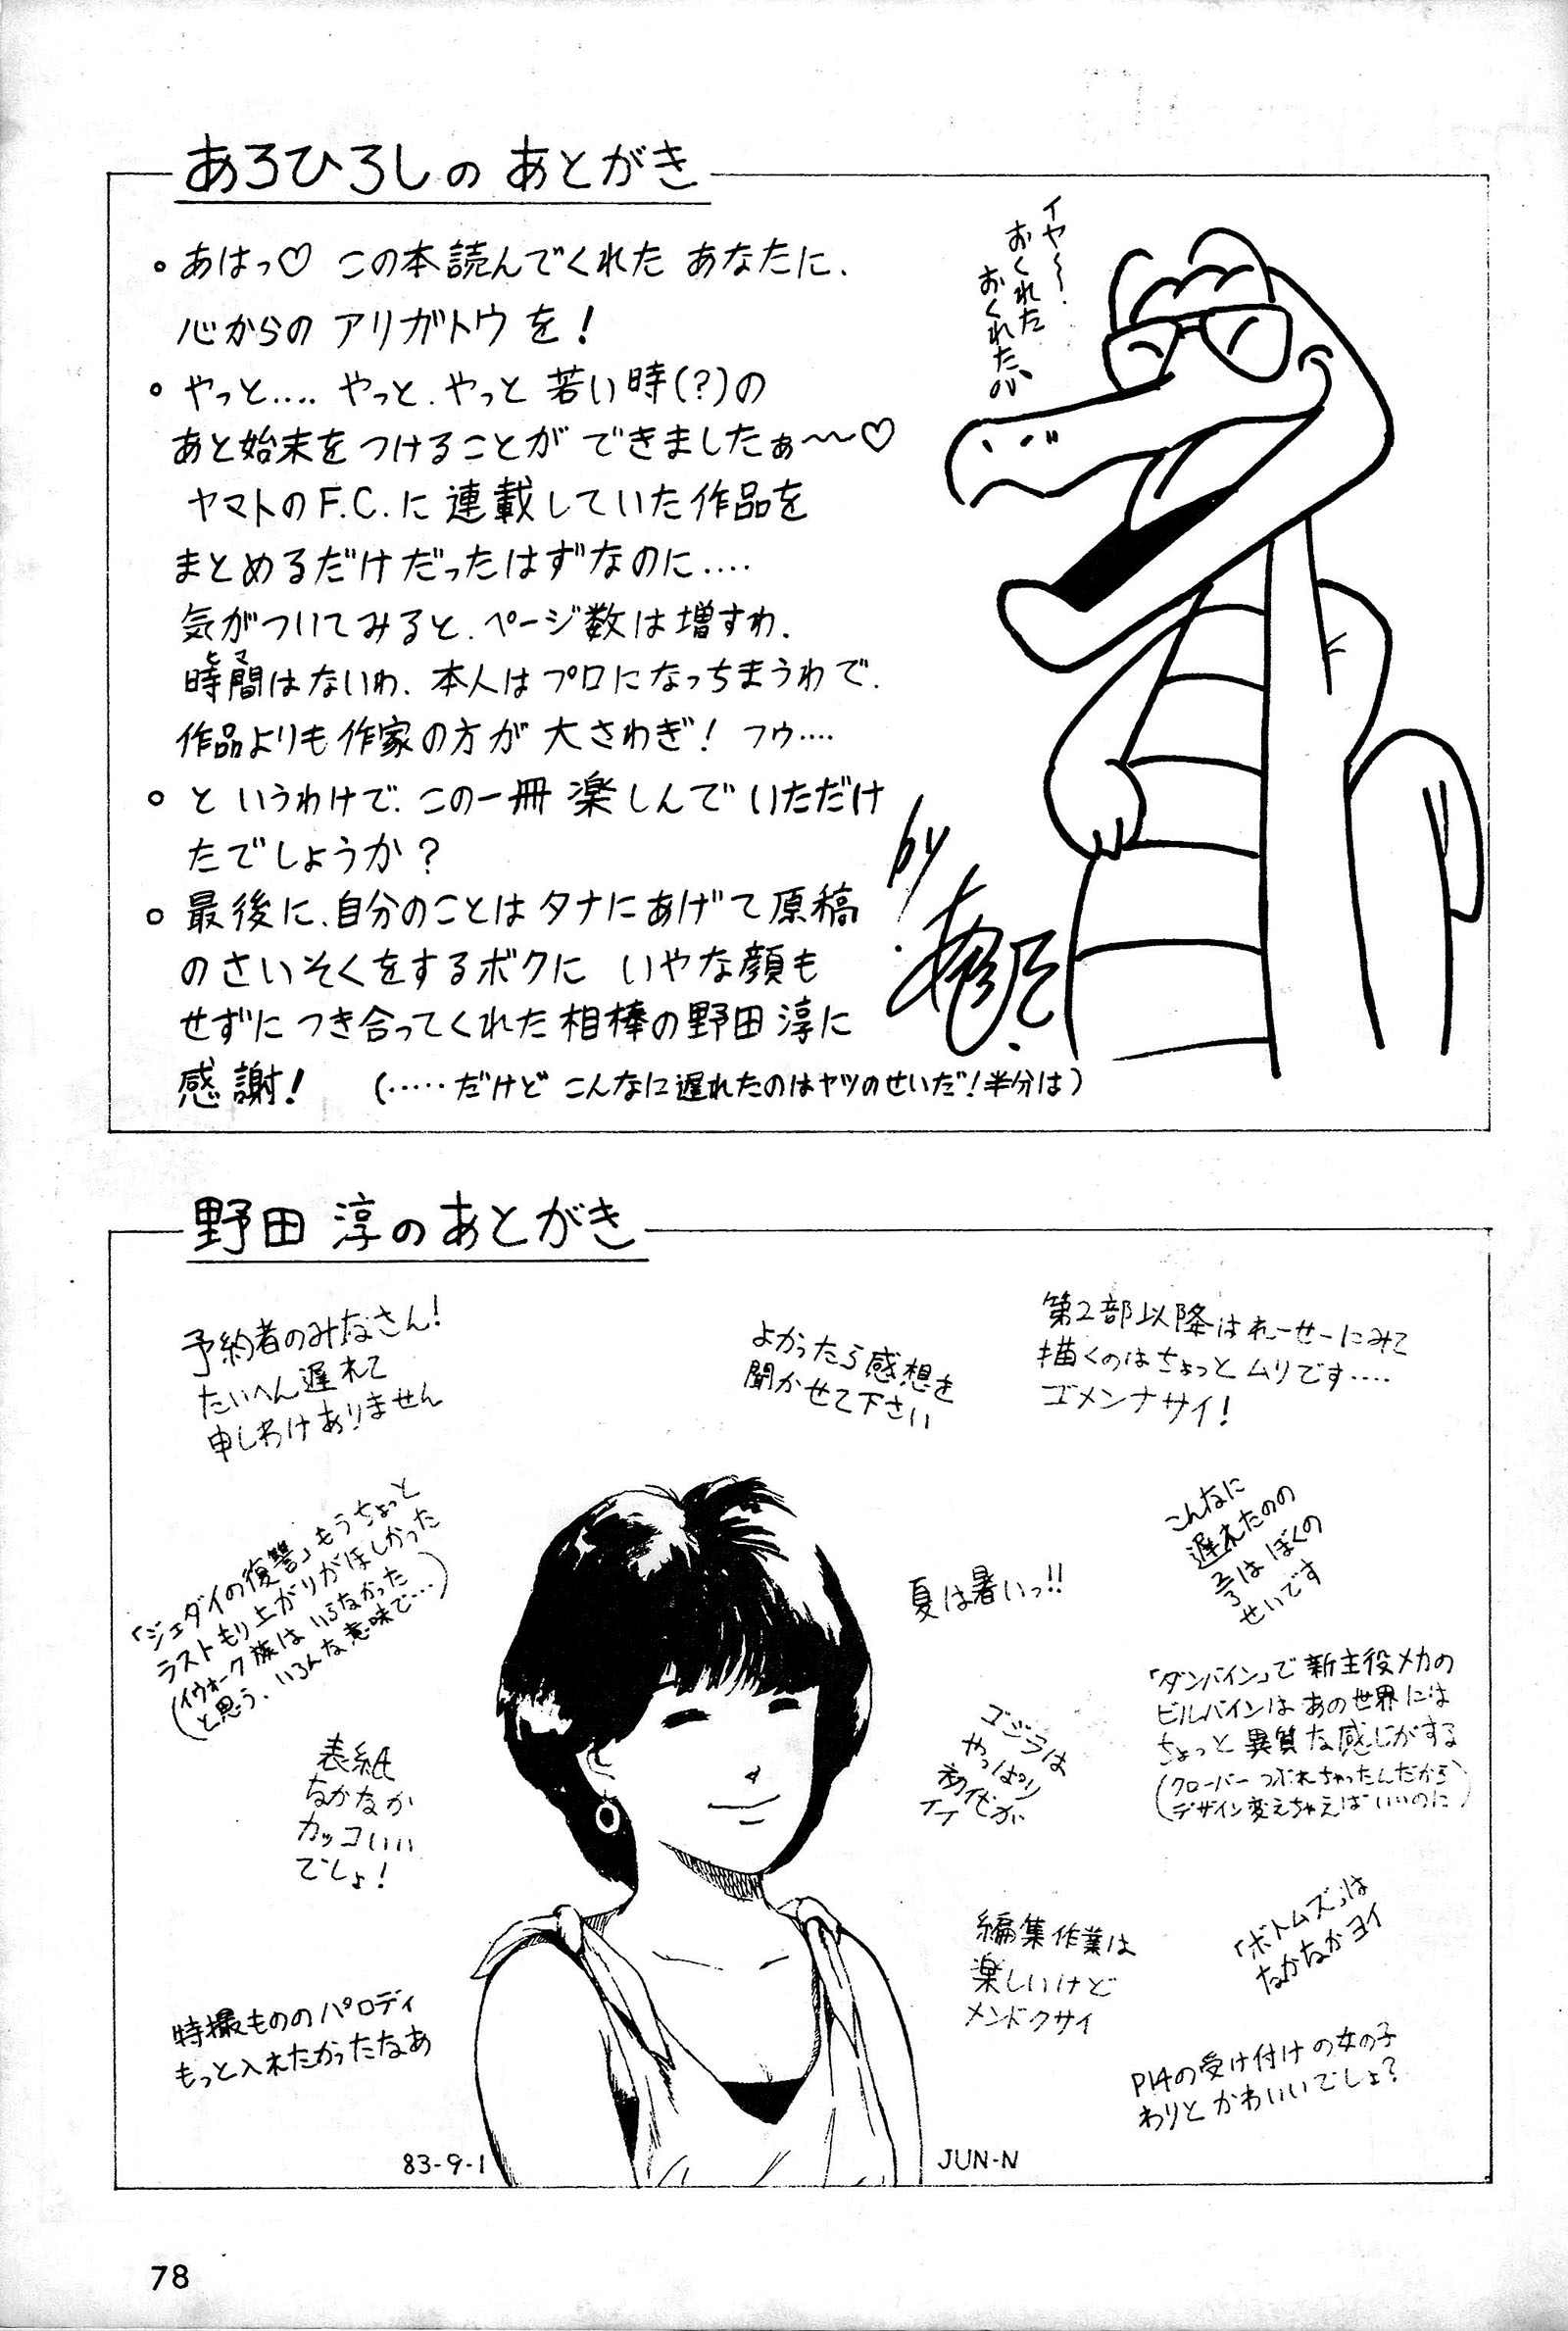 あろひろしの あとがき
イヤ〜!
おくれた
おくれたぃ
。あはっ♡ この本読んでくれた あなたに、
心からの アリガトウ を!
。やっと‥‥ やっと、やっと 若い時(?)の
あと始末を つけることが できましたぁ〜〜♡
ヤマトのF.C.に 連載していた作品を
まとめるだけだったはずなのに‥‥
気がついてみると、ページ数は増すわ、
時間はないわ、本人はプロになっちまうわで、
作品よりも作家の方が 大さわぎ! フゥ‥‥
。と いうわけで、この一冊 楽しんで いただけ
たでしょうか?
。最後に、自分のことは タナにあげて 原稿
のさいそくをするボクに いやな顔も
せずに つき合ってくれた 相棒の野田 淳に
感謝! (‥‥‥だけど こんなに遅れたのはヤツのせいだ!半分は)
by
野田 淳のあとがき
予約者のみなさん!
たいへん遅れて
申しわけありません
よかったら感想を
聞かせて下さい
第2部以降はれーせーにみて
描くのはちょっと ムリです‥‥
ゴメンナサイ!
「ジェダイの復讐」もうちょっと
ラストもり上がりがほしかった
(イウォーク族は いらなかった
と思う、いろんな意味で‥‥)
こんなに
遅れたのの
2/3は ぼくの
せいです
夏は暑いっ!!
「ダンバイン」で 新主役メカの
ビルバインは あの世界には
ちょっと 異質な感じがする
(クローバー つぶれちゃったんだから
デザイン変えちゃえば いいのに)
ゴジラは
やっぱり
初代が
イイ
表紙
なかなか
カッコいい
でしょ!
編集作業は
楽しいけど
メンドクサイ
「ボトムズ」は
なかなかヨイ
特撮もののパロディ
もっと入れたかったなあ
P14の受け付けの女の子
わりと かわいいでしょ?
83-9-1
JUN-N
78